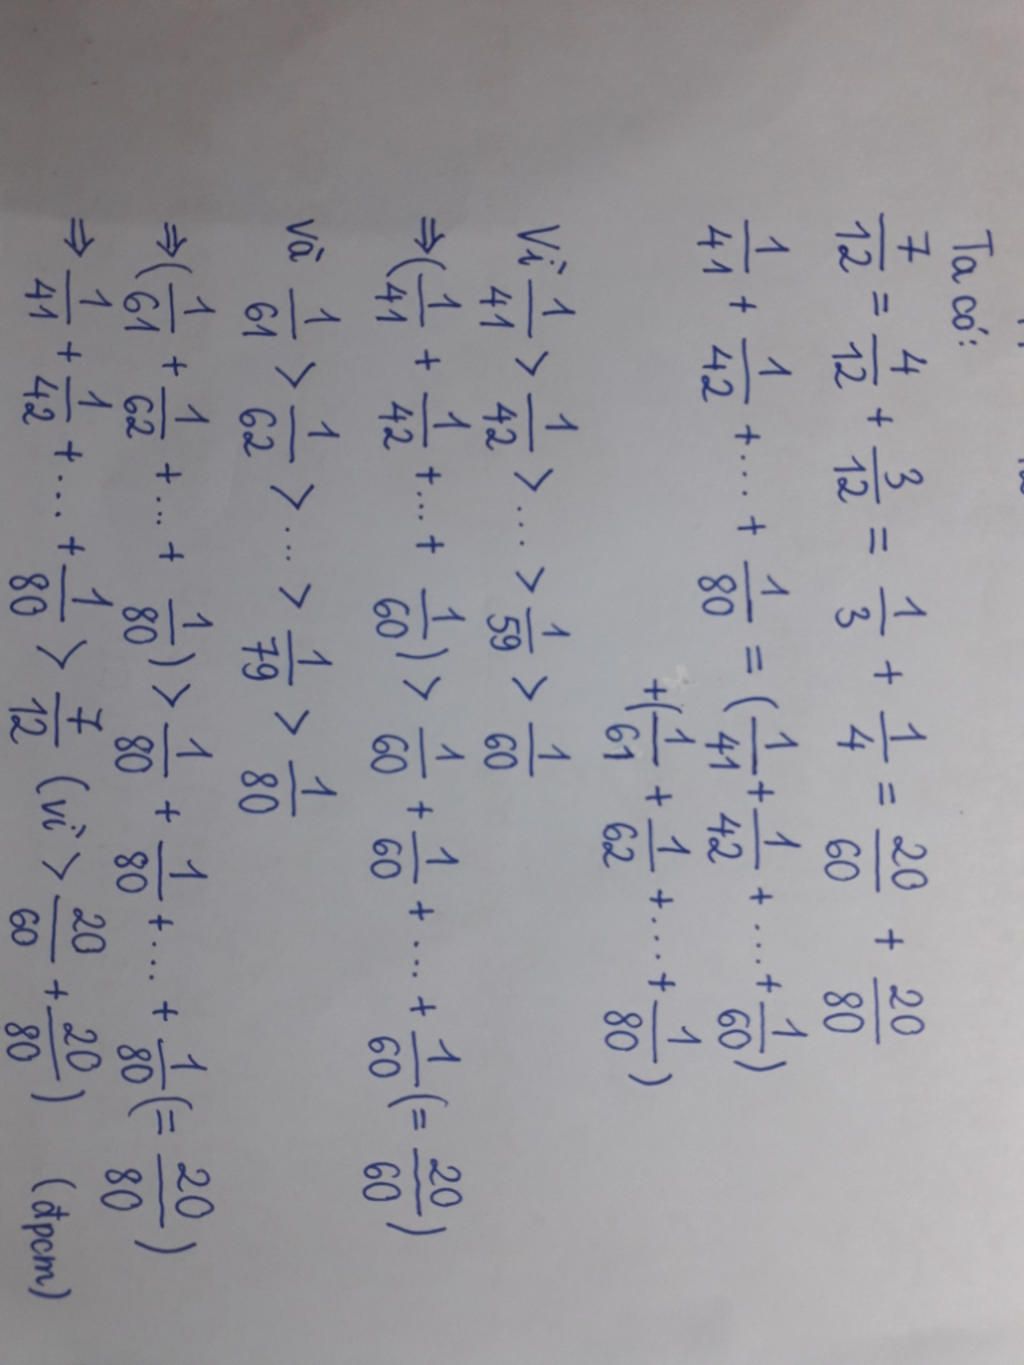 Ta có:
7/12 = 4/12 + 3/12 = 1/3 + 1/4 = 20/60 + 20/80
1/41 + 1/42 + ... + 1/80 = (1/41 + 1/42 + ... + 1/60)
+ (1/61 + 1/62 + ... + 1/80)
Vì 1/41 > 1/42 > ... > 1/59 > 1/60
⇒ (1/41 + 1/42 + ... + 1/60) > 1/60 + 1/60 + ... + 1/60 (= 20/60)
Và 1/61 > 1/62 > ... > 1/79 > 1/80
⇒ (1/61 + 1/62 + ... + 1/80) > 1/80 + 1/80 + ... + 1/80 (= 20/80)
⇒ 1/41 + 1/42 + ... + 1/80 > 7/12 (vì > 20/60 + 20/80) (đpcm)